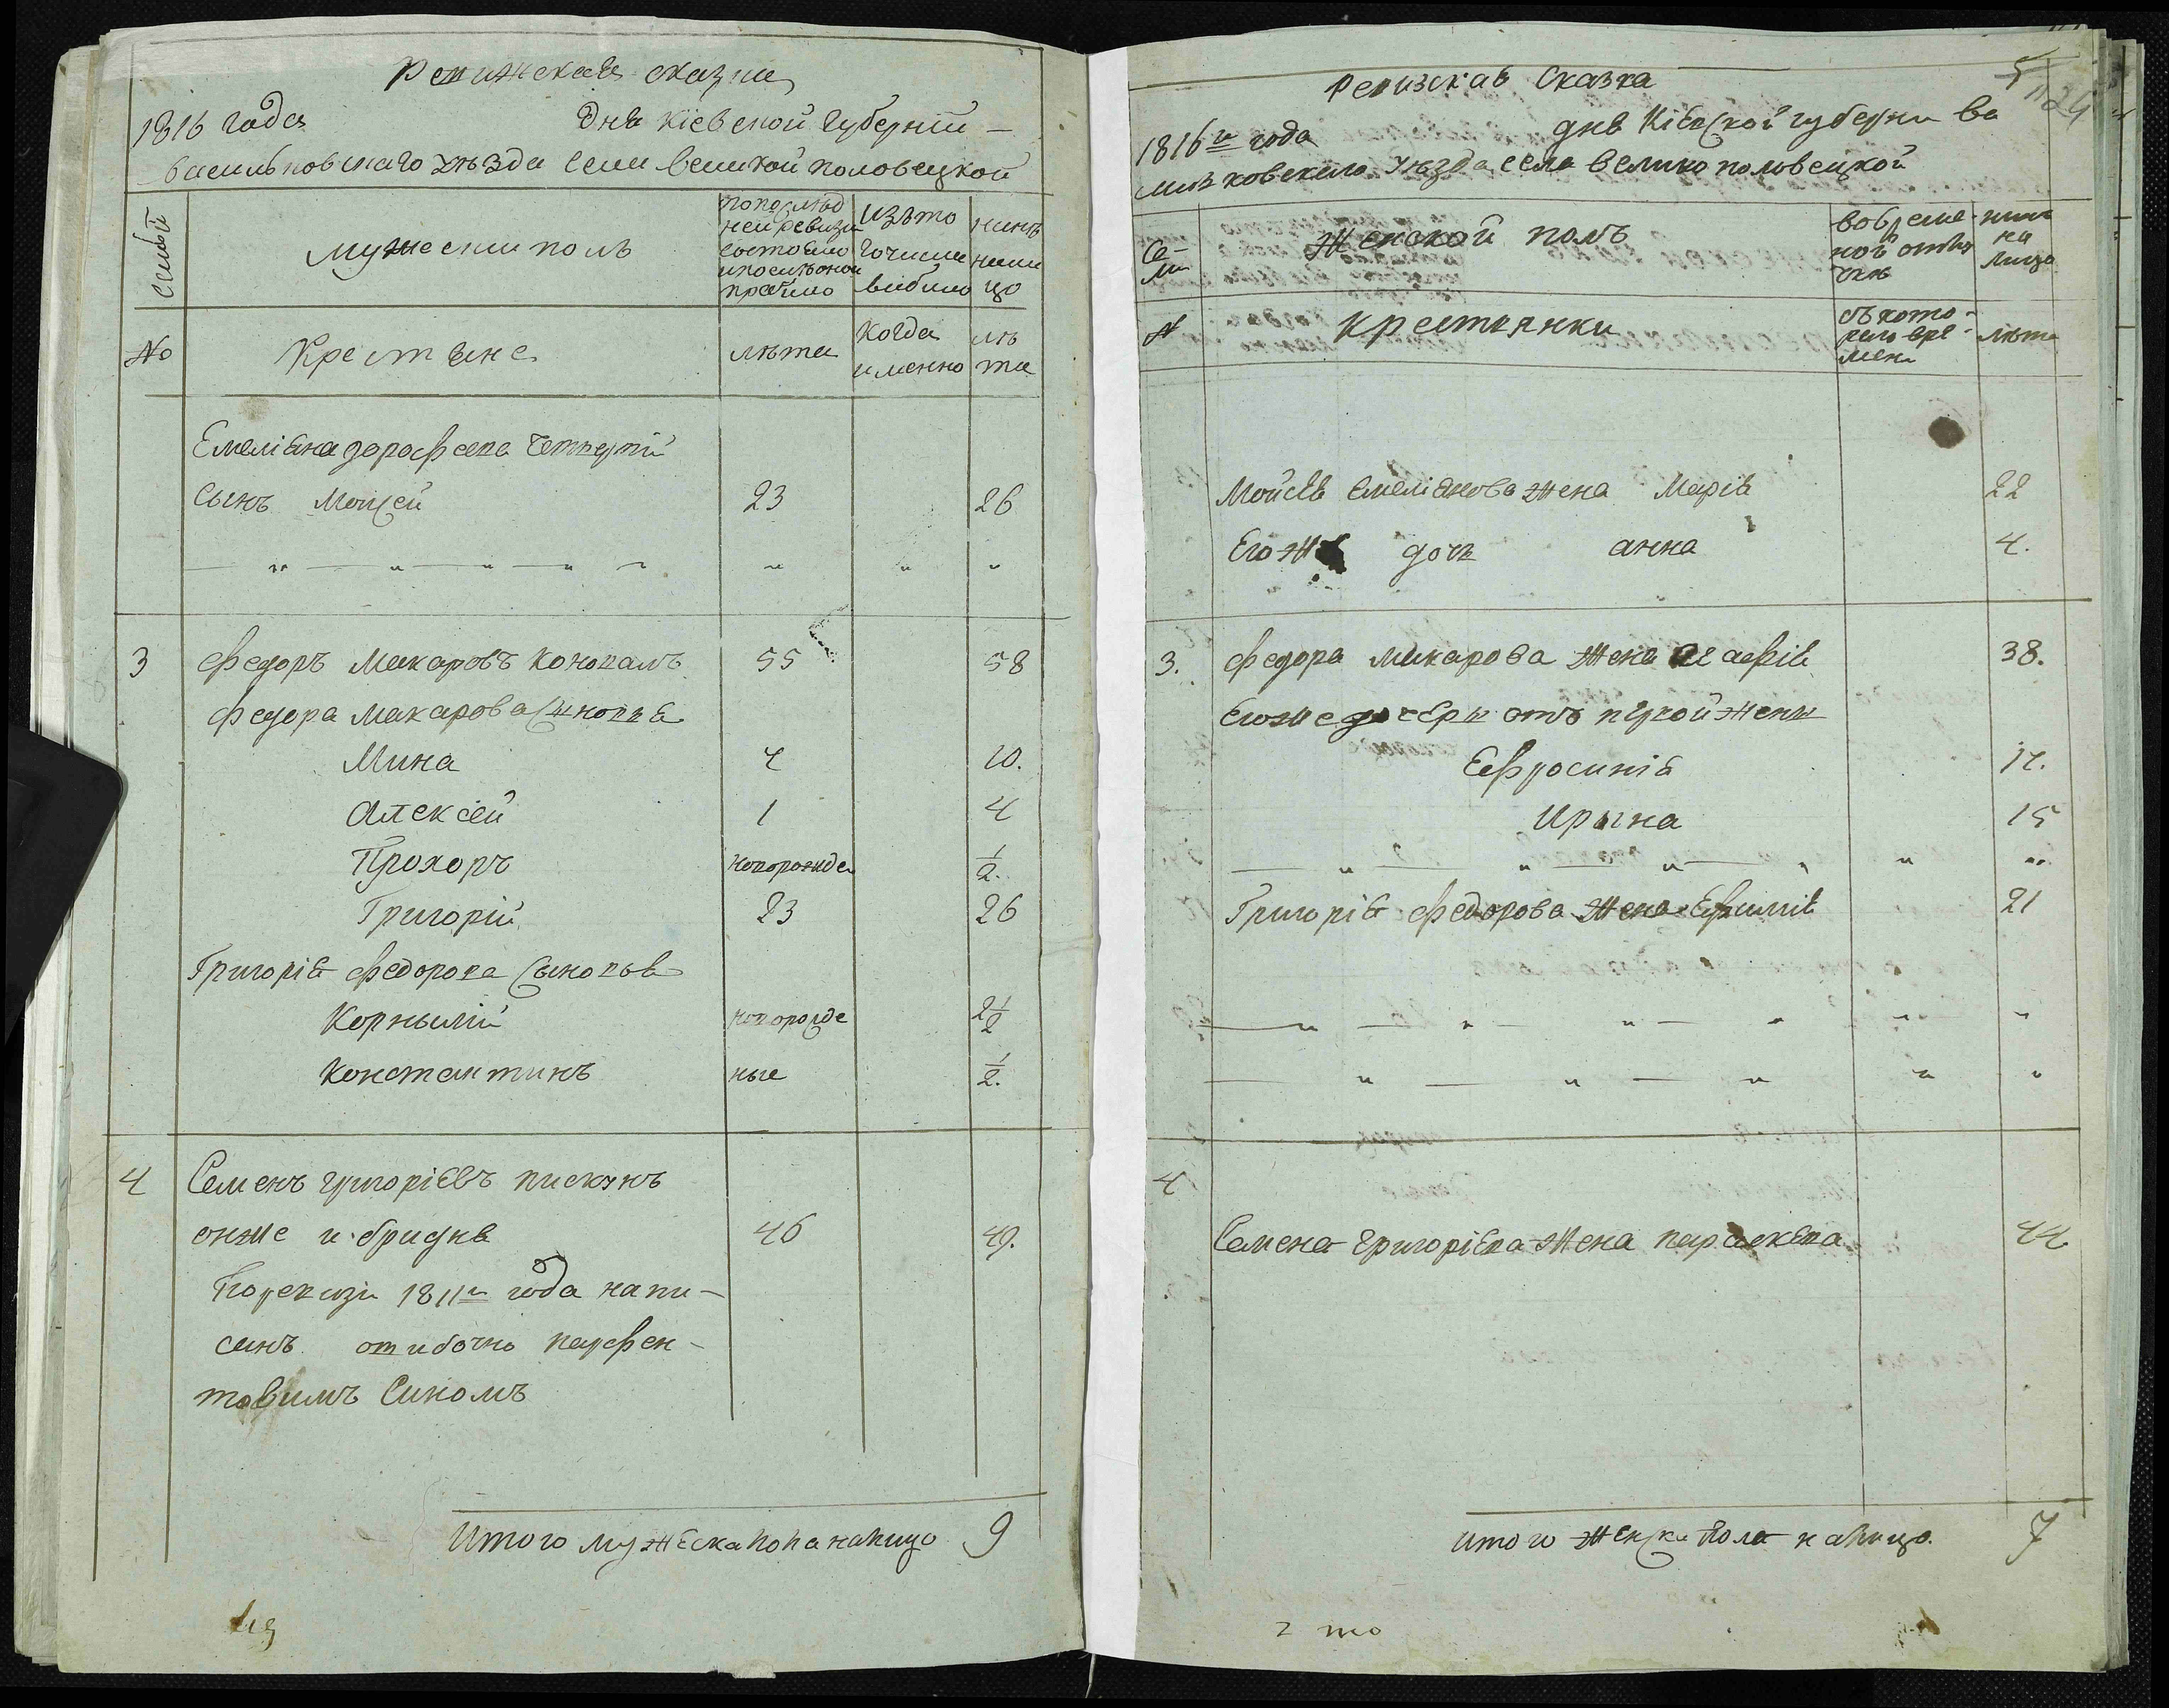 Ревижская сказка
1816 года дня Кіевской Губерніи
васильковскаго уѣзда села великой половецкой
Семьи
мужески полъ
по послѣд
ней ревизіи
состояло
и после оной
прибило
Изъ то
го числа
выбило
нынѣ
нали
цо
№
Крестьяне
лѣта
Когда
именно
лѣ
та
Емеліана дорофеева Четвертій
Сынъ Моисей 23 26
3 Федоръ Макаровъ Коновалъ 55 58
Федора Макарова Сыновья
Мина 7 10.
Алексей 1 4
Прохоръ новорожде 1/2.
Григорій 23 26
Григорія Федорова Сыновья
Корнылій новорозде 2 1/2
Константинъ ные 1/2.
4 Семенъ Григоріевъ пискунъ
онже и бридня 46 49.
По ревизи 1811го года напи-
санъ ошибочно парфен-
товимъ Синомъ
Итого мужеска пола налицо 9
Ревизская Сказка
5
1816го года дня Кіевской губерни Ва
сильковскаго Уезда села Велико половецкой
Се-
ми
Женской полъ
во време-
ной отлу
чкѣ
нине
на
лицо
№
Крестянки
съ кото-
раго вре-
мени
лѣта
Мойсея Емеліанова жена Марія 22
Его же дочь анна 4.
3. Федора Макарова жена Агафія 38.
Его же дочеры отъ первой жены
Ефросинія 17.
Ирына 15
Григорія Федорова жена Ефимія 21
4
Семена Григоріева жена параскева 44
Итого женска пола налицо. 7